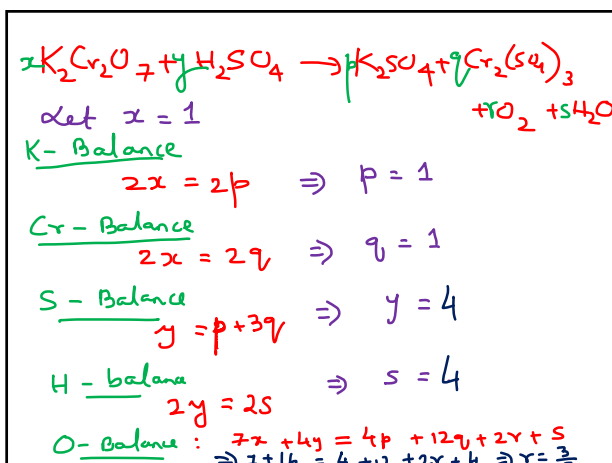 xK₂Cr₂O₇ + yH₂SO₄ → pK₂SO₄ + qCr₂(SO₄)₃
+ rO₂ + sH₂O
Let x = 1
K - Balance
2x = 2p ⇒ p = 1
Cr - Balance
2x = 2q ⇒ q = 1
S - Balance
y = p + 3q ⇒ y = 4
H - balance
2y = 2s ⇒ s = 4
O - Balance : 7x + 4y = 4p + 12q + 2r + s
⇒ 7 + 16 = 4 + 12 + 2r + 4 ⇒ r = 3/2